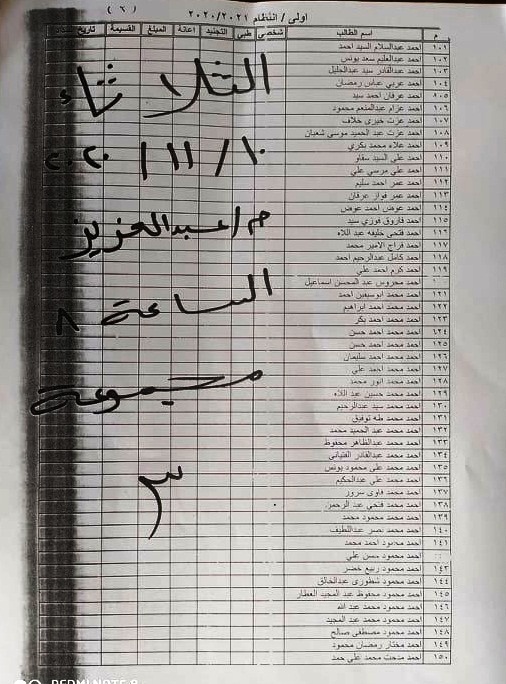 (٦) أولى / انتظام ٢٠٢٠/٢٠٢١
م اسم الطالب شخصى طبى التجنيد إعانة المبلغ القسيمة تاريخ
١٠١ احمد عبدالسلام السيد احمد
١٠٢ احمد عبدالعليم سعد يونس
١٠٣ احمد عبدالقادر سيد عبدالجليل
١٠٤ احمد عربي عباس رمضان
١٠٥ احمد عرفان احمد سيد
١٠٦ احمد عزام عبدالمنعم محمود
١٠٧ احمد عزت خيري خلاف
١٠٨ احمد عزت عبد الحميد موسى شعبان
١٠٩ احمد علاء محمد بكري
١١٠ احمد على السيد
١١١ احمد علي مرسي علي
١١٢ احمد عمر احمد سليم
١١٣ احمد عمر فواز عرفان
١١٤ احمد عوض احمد عوض
١١٥ احمد فاروق فوزي سيد
١١٦ احمد فتحى خليفه عبد اللاه
١١٧ احمد فراج الامير محمد
١١٨ احمد كامل عبدالرحيم احمد
١١٩ احمد كرم احمد علي
احمد محروس عبد المحسن اسماعيل
١٢١ احمد محمد ابوسيفين احمد
١٢٢ احمد محمد احمد ابراهيم
١٢٣ احمد محمد احمد بكر
١٢٤ احمد محمد احمد حسن
١٢٥ احمد محمد احمد حسن
١٢٦ احمد محمد احمد سليمان
١٢٧ احمد محمد احمد علي
١٢٨ احمد محمد انور محمد
١٢٩ احمد محمد حسين عبد اللاه
١٣٠ احمد محمد سيد عبدالرحيم
١٣١ احمد محمد طه توفيق
١٣٢ احمد محمد عبد الحميد محمد
١٣٣ احمد محمد عبدالظاهر محفوظ
١٣٤ احمد محمد عبدالقادر
١٣٥ احمد محمد على محمود يونس
١٣٦ احمد محمد على عبدالحكيم
١٣٧ احمد محمد فاوى سرور
١٣٨ احمد محمد فتحي عبد الرحمن
١٣٩ احمد محمد محمود محمد
١٤٠ احمد محمد نصر عبداللطيف
١٤١ احمد محمود احمد محمد
احمد محمود حسن علي
١٤٣ احمد محمود ربيع خضر
١٤٤ احمد محمود شطورى عبدالخالق
١٤٥ احمد محمود محفوظ عبد المجيد العطار
١٤٦ احمد محمود محمد عبد الله
١٤٧ احمد محمود محمد عبد المجيد
١٤٨ احمد محمود مصطفى صالح
١٤٩ احمد مختار رمضان محمود
١٥٠ احمد مدحت محمد علي حمد
الثلاثاء
١٠ / ١١ / ٢٠٢٠
م/عبدالعزيز
الساعة ٨
مجموعة
٣
REDMI NOTE 8